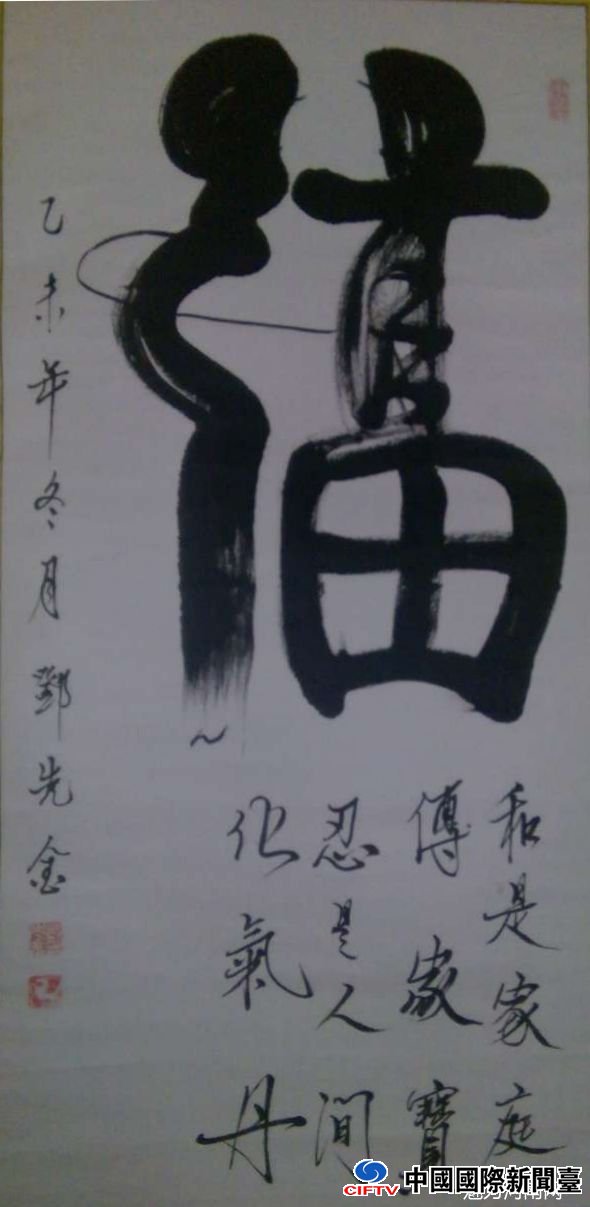 福
和是家庭
傳家寶
忍是人间
化氣丹
乙未年冬月鄧先金
CIFTV 中國國際新聞臺